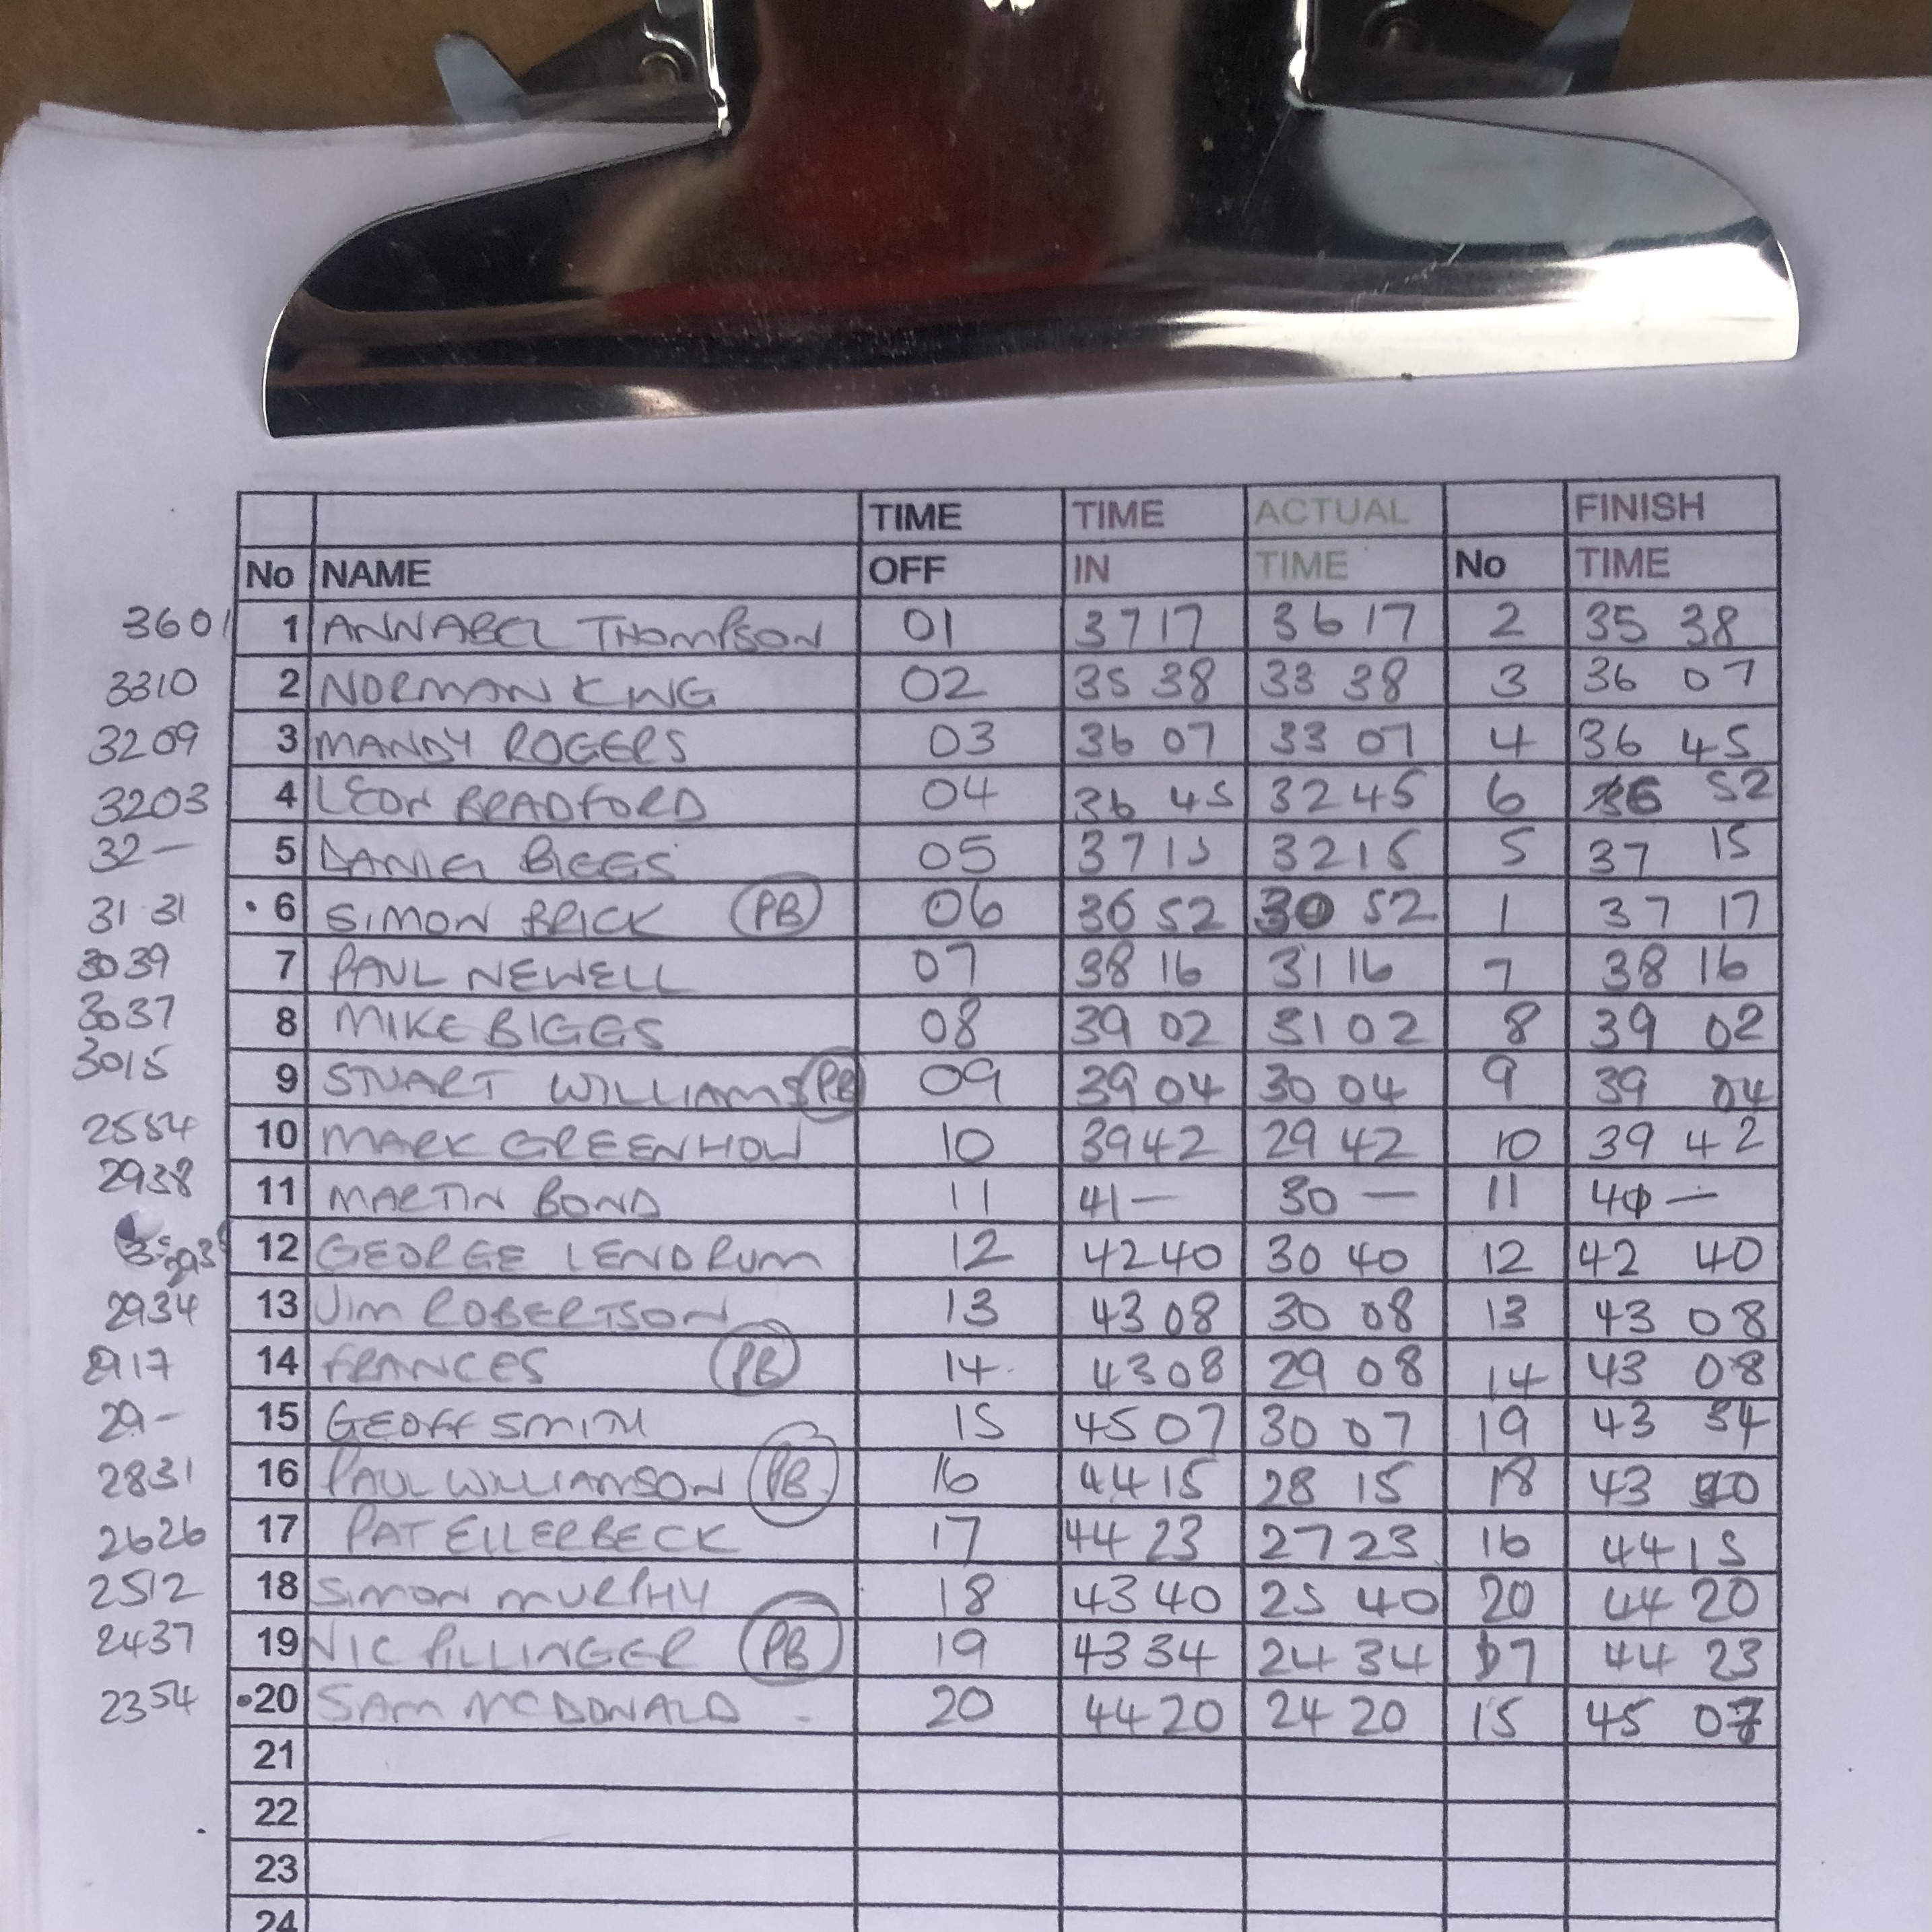 TIME TIME ACTUAL FINISH
No NAME OFF IN TIME No TIME
3601 1 ANNABEL THOMPSON 01 37 17 36 17 2 35 38
3310 2 NORMAN KING 02 35 38 33 38 3 36 07
3209 3 MANDY ROGERS 03 36 07 33 07 4 36 45
3203 4 LEON BRADFORD 04 36 45 32 45 6 36 52
32 — 5 DANIEL BIGGS 05 37 15 32 15 5 37 15
31 31 • 6 SIMON BRICK PB 06 36 52 30 52 1 37 17
3039 7 PAUL NEWELL 07 38 16 31 16 7 38 16
3037 8 MIKE BIGGS 08 39 02 31 02 8 39 02
3015 9 STUART WILLIAMS PB 09 39 04 30 04 9 39 04
2554 10 MARK GREENHOW 10 39 42 29 42 10 39 42
2938 11 MARTIN BOND 11 41 — 30 — 11 41 —
12 GEORGE LENDRUM 12 42 40 30 40 12 42 40
2934 13 JIM ROBERTSON 13 43 08 30 08 13 43 08
2917 14 FRANCES PB 14 43 08 29 08 14 43 08
29 – 15 GEOFF SMITH 15 45 07 30 07 19 43 34
2831 16 PAUL WILLIAMSON PB 16 44 15 28 15 18 43 40
2626 17 PAT ELLERBECK 17 44 23 27 23 16 44 15
2512 18 SIMON MURPHY 18 43 40 25 40 20 44 20
2437 19 VIC PILLINGER PB 19 43 34 24 34 17 44 23
2354 •20 SAM MCDONALD - 20 44 20 24 20 15 45 07
21
22
23
24